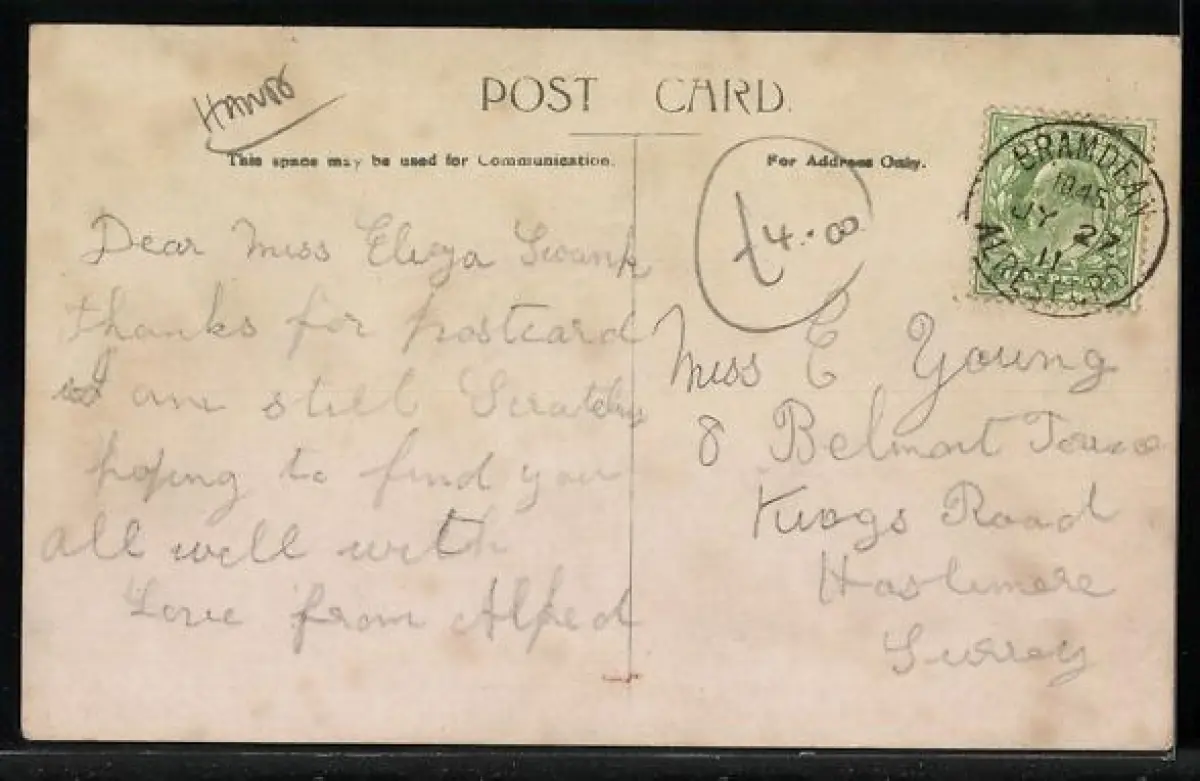 HANTS
POST CARD.
This space may be used for Communication.
For Address Only.
BRAMDEAN
1045
JY 27
11
ALRESFORD
£4.00
Dear Miss Eliza Swank
thanks for postcard
I am still Scratching
hoping to find you
all well with
Love from Alfred
Miss E Young
8 Belmont
Kings Road
Haslemere
Surrey